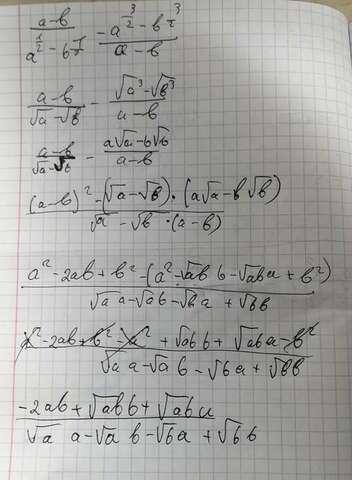 (a-b)/(a^(1/2) - b^(1/2)) - (a^(3/2) - b^(3/2))/(a-b)
(a-b)/(√a-√b) - (√a³-√b³)/(a-b)
(a-b)/(√a-√b) - (a√a-b√b)/(a-b)
((a-b)² - (√a-√b)·(a√a-b√b))/(√a-√b·(a-b))
(a²-2ab+b²-(a²-√ab b-√ab a+b²))/(√a a-√a b-√b a+√b b)
(a²-2ab+b²-a²+√ab b+√ab a-b²)/(√a a-√a b-√b a+√b b)
(-2ab+√ab b+√ab a)/(√a a-√a b-√b a+√b b)